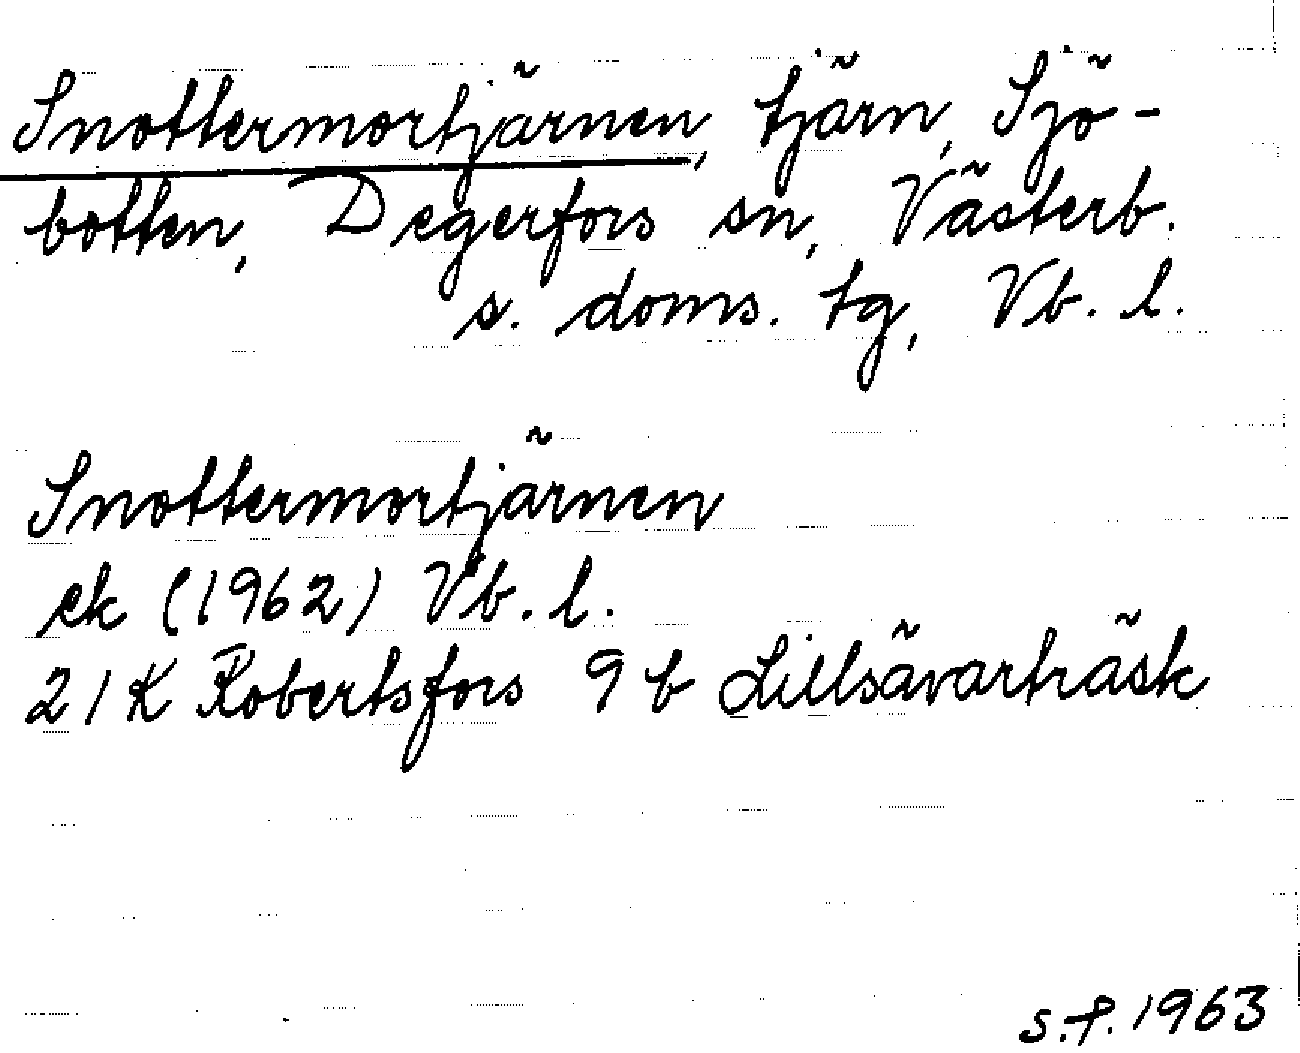 Snottermortjärnen, tjärn, Sjö-
botten, Degerfors sn, Västerb.
s. doms. tg, Vb. l.
Snottermortjärnen
ek (1962) Vb. l.
21K Robertsfors 9 b Lillsävarträsk
s.f. 1963